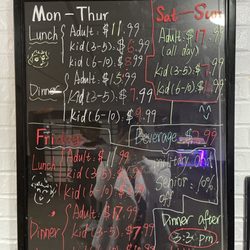 Mon-Thur
Lunch
Adult: $11.99
kid(3-5): $6.99
kid(6-10): $8.99
Dinner
Adult: $15.99
kid(3-5): $7.99
kid(6-10): $9.99
Sat-Sun
Adult: $17.99
(all day)
kid(3-5): $7.99
kid(6-10):
Friday
Lunch
Adult:
kid(3-5):
kid(6-10):
Dinner
Adult: $17.99
kid(3-5): $7.99
kid(6-10):
Beverage: $2.99
off
Senior: 10%
off
Dinner after
3:30 pm